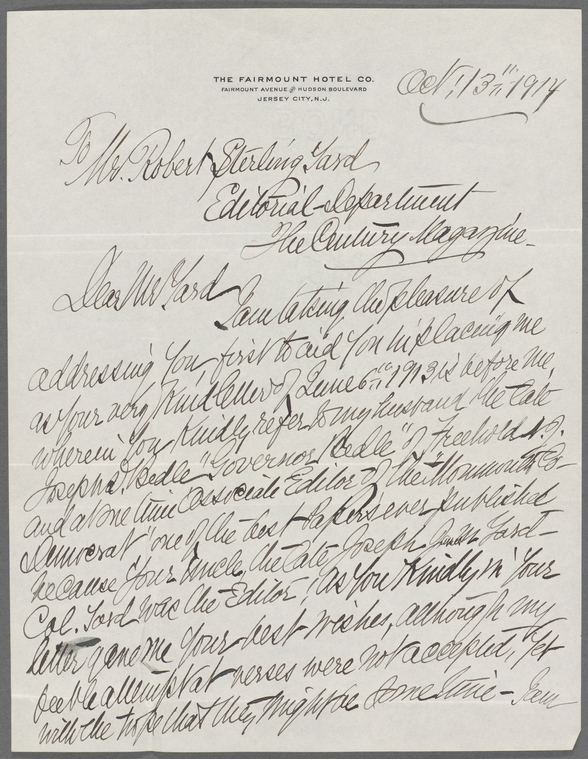 THE FAIRMOUNT HOTEL CO.
FAIRMOUNT AVENUE and HUDSON BOULEVARD
JERSEY CITY, N.J.
Oct. 13th, 1914
To Mr. Robert Sterling Yard
Editorial Department
The Century Magazine.
Dear Mr Yard I am taking the pleasure of
addressing you, first to aid you in placing me
as your very kind letter of June 6th, 1913 is before me,
wherein you kindly refer to my husband the late
Joseph D. Bedle "Governor Bedle" of Freehold N.J.
and at one time "Associate Editor" of the "Monmouth Co-
Democrat" one of the best papers ever published
because your Uncle, the late Joseph Yard-
Col. Yard was the Editor. As you kindly in your
letter gave me your best wishes, although my
feeble attempt at verses were not accepted, yet
with the hope that they might be some time - I am